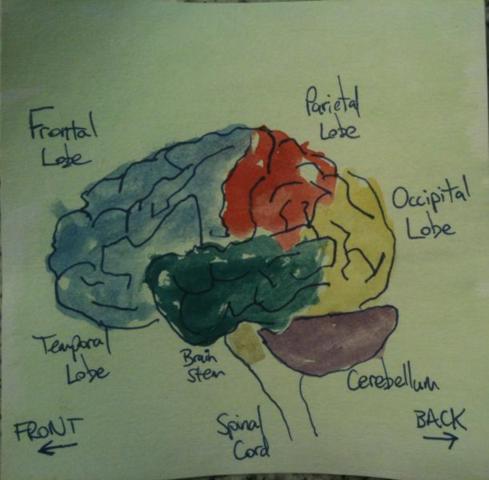 Frontal
Lobe
Parietal
Lobe
Occipital
Lobe
Temporal
Lobe
Brain
Stem
Cerebellum
Spinal
Cord
FRONT
BACK